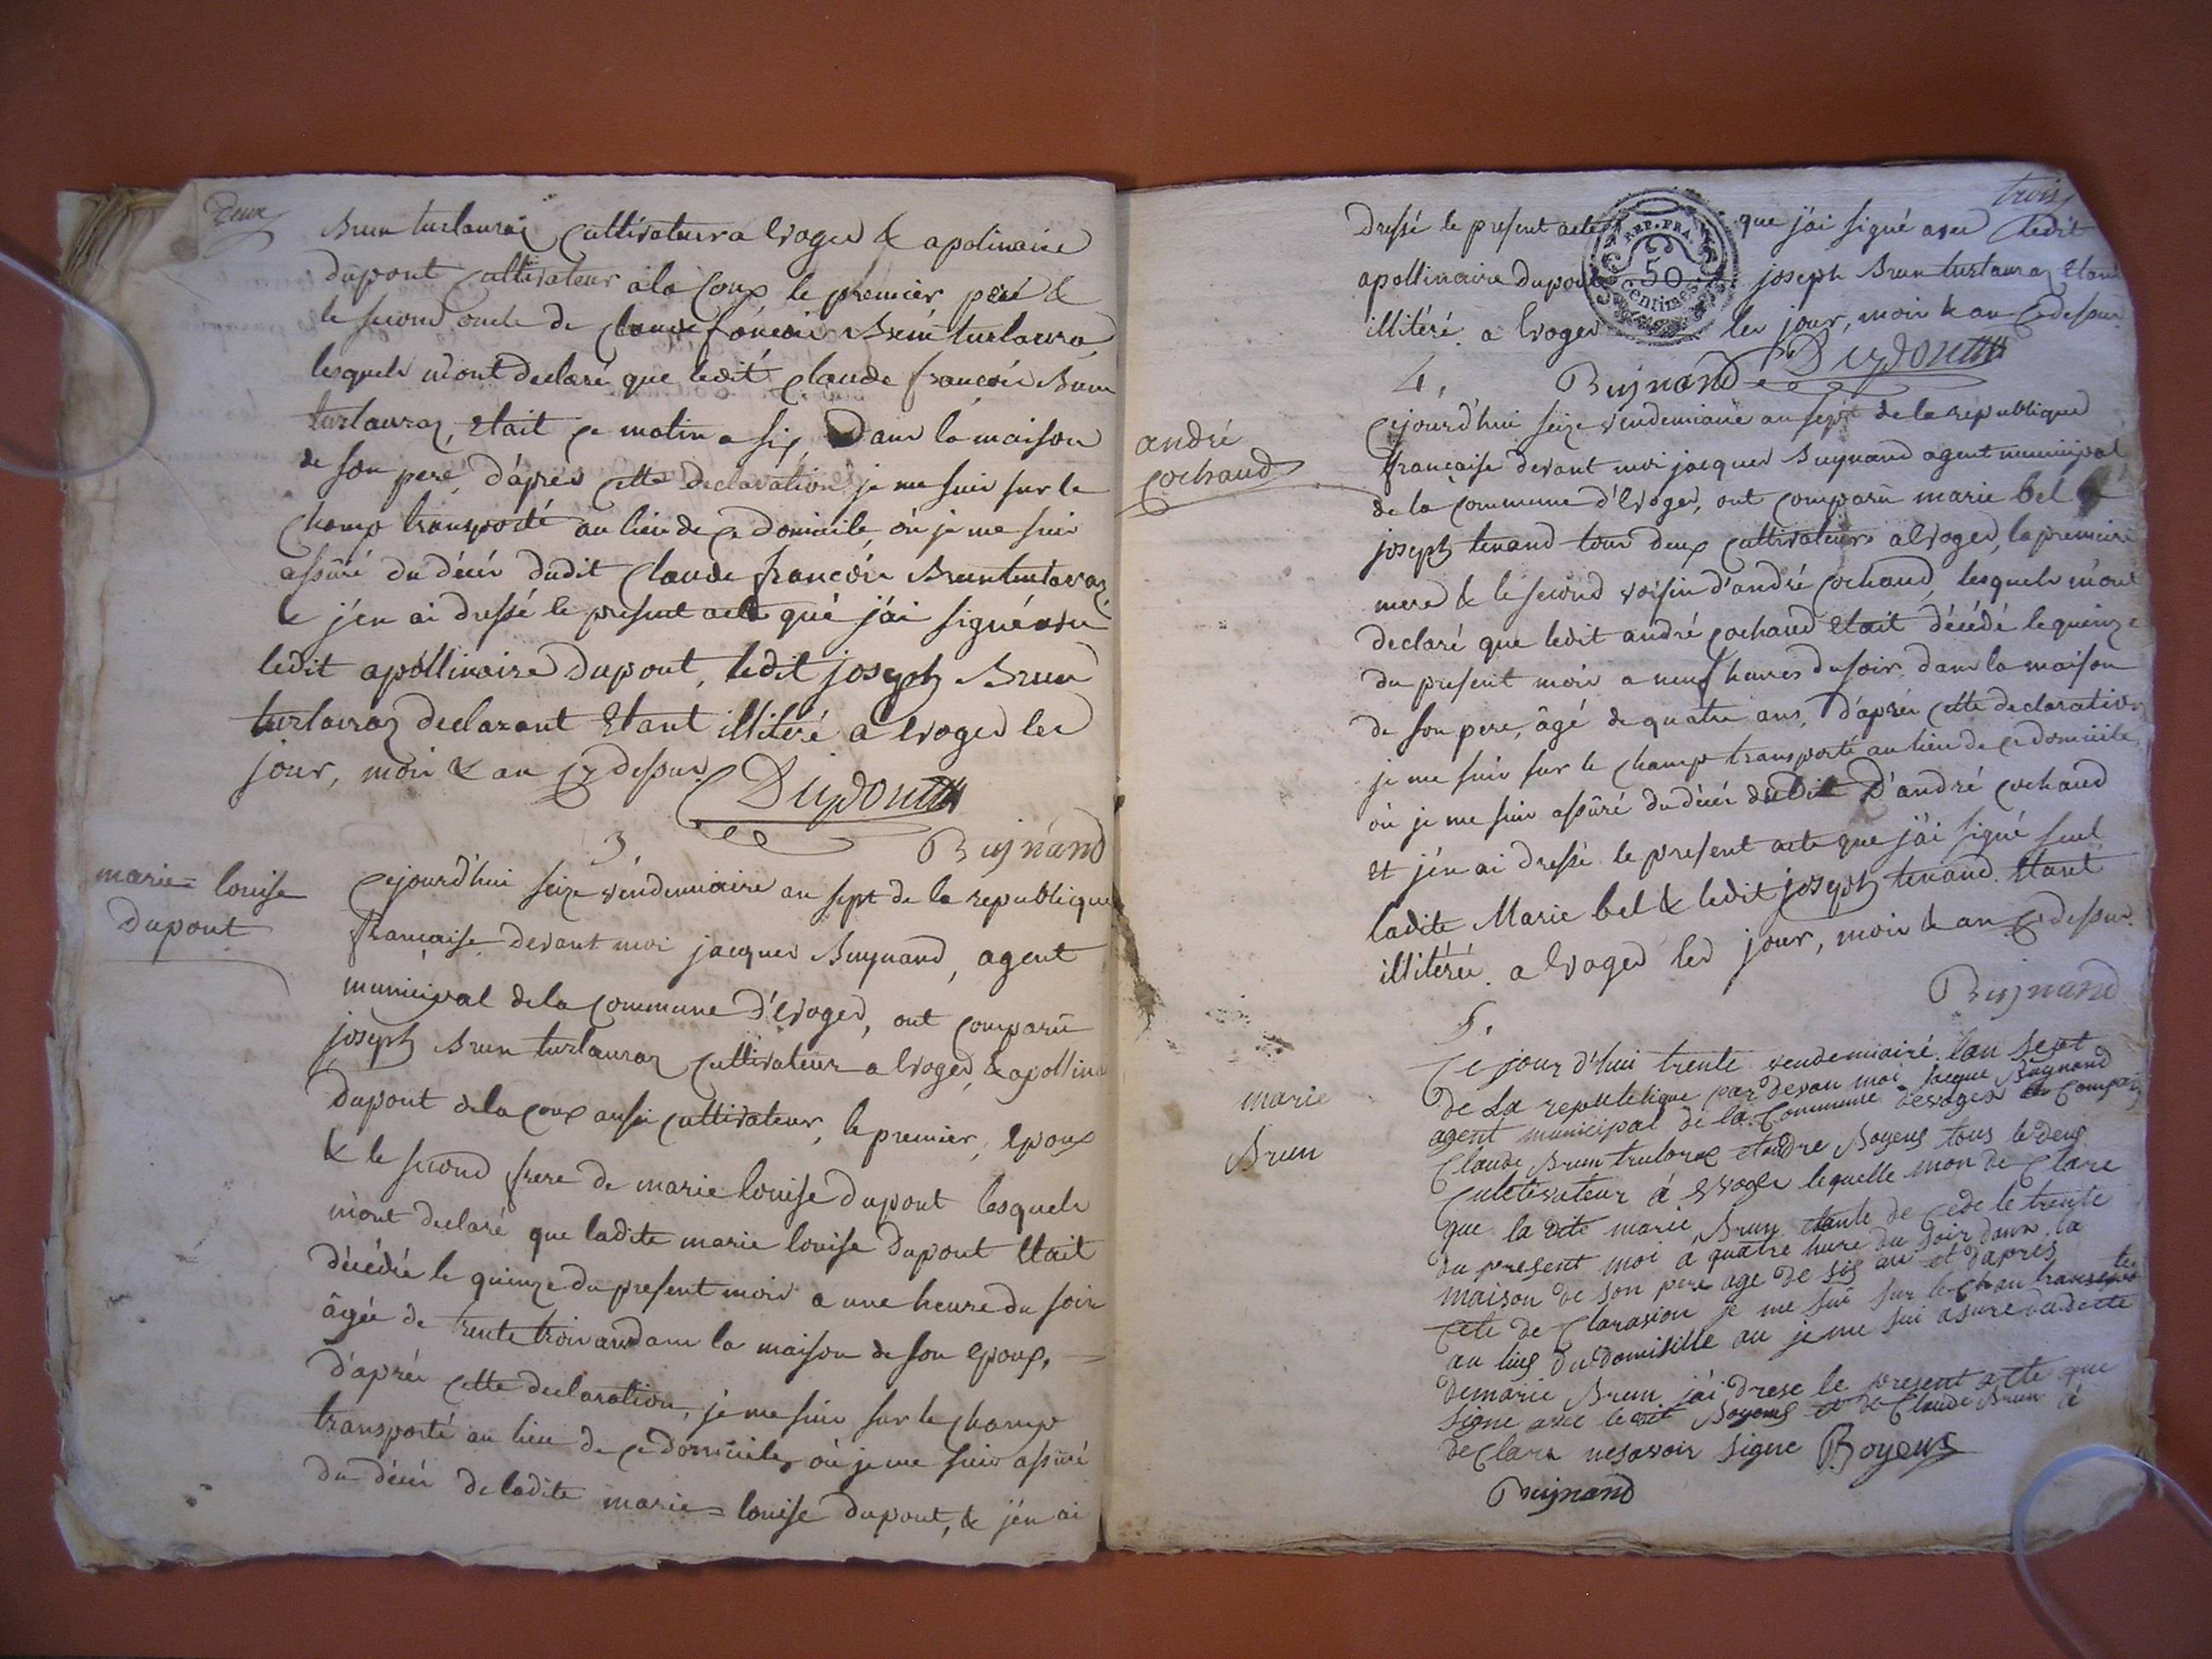 Deux
Brun turlauraz Cultivateur a Evoges & apolinaire
dupont Cultivateur a la Coux le premier peré &
le second oncle de Claude françois Brun turlauraz
lesquels m'ont declaré que ledit Claude françois Brun
turlauraz, etait ce matin a six dans la maison
de son pere, d'après cette declaration je me suis sur le
champ transporté au lieu de ce domicile, où je me suis
assuré du décès dudit Claude françois Brun turlauraz
& j'en ai dressé le present acte que j'ai signé avec
ledit apollinaire Dupont, ledit joseph Brun
turlauraz declarant etant illitéré a Evoges les
jour, mois & an cy dessus.
Dupont
Buynand
3
marie=louise
dupont
Cejourd'hui seize vendemiaire an sept de la republique
francaise devant moi jacques Buynand, agent
municipal de la Commune d'Evoges, ont comparû
joseph Brun turlauraz Cultivateur a Evoges, & apollina
dupont de la Coux aussi Cultivateur, le premier, epoux
& le second frere de marie louise dupont lesquels
m'ont declaré que ladite marie louise dupont etait
décédée le quinze du present mois a une heure du soir
âgée de trente trois ans dans la maison de son epoux,
d'après cette declaration, je me suis sur le champ
transporté au lieu de ce domicile, où je me suis assuré
du décès de ladite marie=louise dupont, & j'en ai
trois
dressé le present acte que j'ai signé avec ledit
apollinaire dupont joseph Brun turlauraz etant
illitéré. a Evoges les jour, mois & an Cy dessus.
REP. FRA.
50
Centimes
Buynand Dupont
4.
andré
Cochaud
Cejourd'hui seize vendemiaire an sept de la republique
francaise devant moi jacques Buynand agent municipal
de la Commune d'Evoges, ont comparû marie bel &
joseph tenand tous deux Cultivateurs a Evoges, la premiere
mere & le second voisin d'andré Cochaud, lesquels m'ont
declaré que ledit andré Cochaud etait décédé le quinze
du present mois a neuf heures du soir, dans la maison
de son pere, âgé de quatre ans, d'après cette declaration
je me suis sur le champ transporté au lieu de ce domicile,
où je me suis assûré du décès dudit D'andré Cochaud
et j'en ai dressé le present acte que j'ai signé seul
ladite Marie bel & ledit joseph tenand etant
illitérés. a Evoges les jour, mois & an Cy dessus.
Buynand
5.
marie
Brun
Ce jour d'hui trente vendemiairé lan sept
de La republique par devan moi Jacque Buynand
agent municipal de la Commune devoges on Comparu
Claude Brun trulorax et andre Boyeux tous le deux
Culetivateur á Evoge lequelle mon de Clare
que la dite marie Brun etante de cede le trente
du present moi a quatre hure du soir dans la
maison de son pere age de sis an et dapres
Cete de Clarasion je me sui sur le chan transporte
au lius du domisille au je me sui asure du decte
demarie Brun j'ai drese le present acte que
signe avec le dit Boyeux et de Claude Brun á
de Clare nesavoir signe Boyeux
Buynand